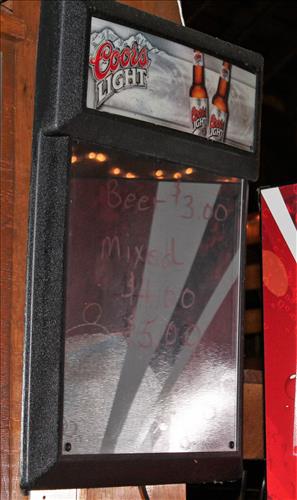 Coors
LIGHT
LIGHT LIGHT
Beer $3.00
Mixed
$4.00
$5.00